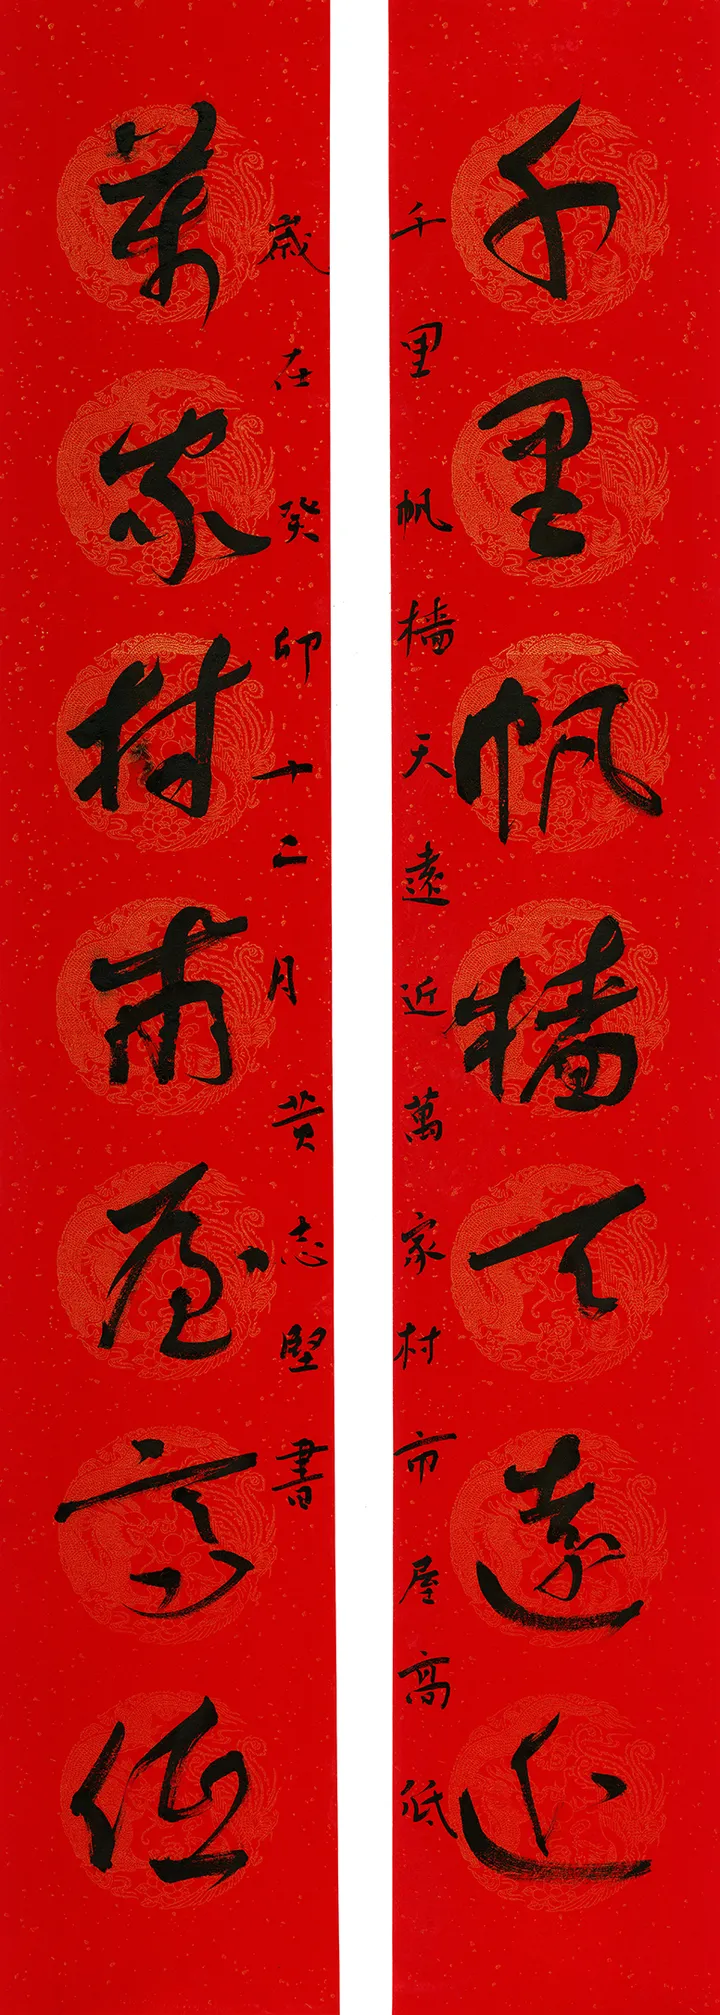 千里帆樯天遠近
千里帆樯天遠近萬家村市屋高低
歲在癸卯十二月黄志堅書
萬家村市屋高低